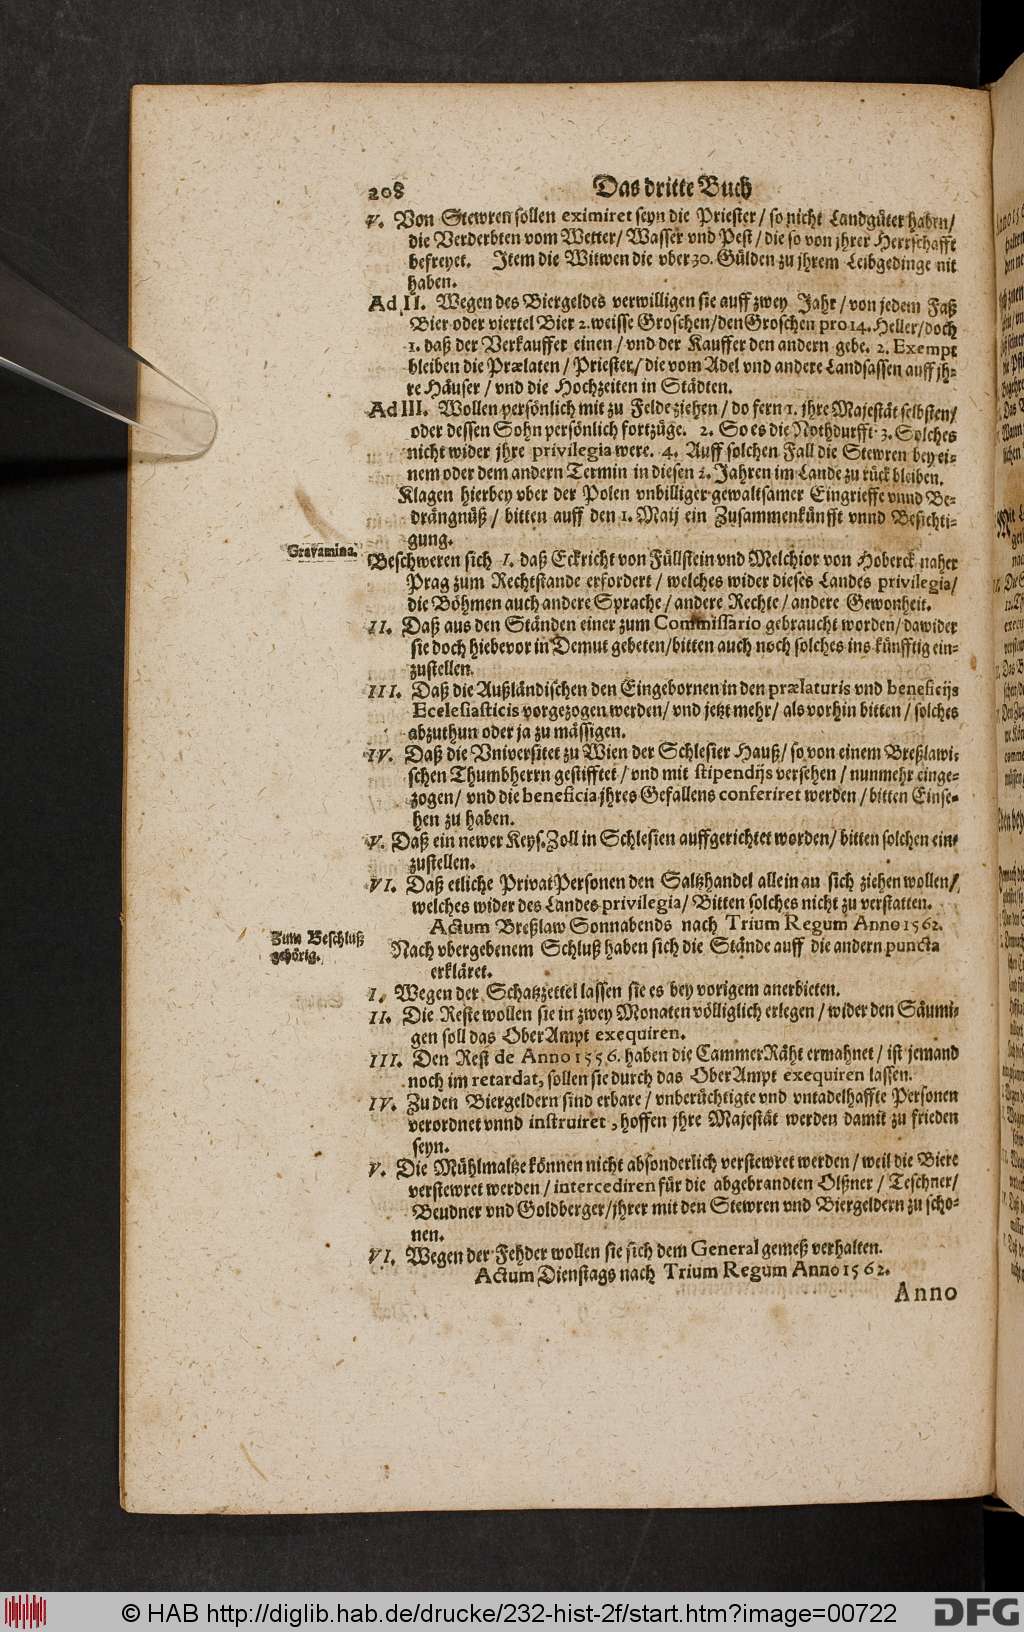 208 Das dritte Buch
V. Von Stewren sollen eximiret seyn die Priester / so nicht Landgüter haben /
die Verderbten vom Wetter / Wasser vnd Pest / die so von jhrer Herrschafft
befreyet. Item die Witwen die vber 30. Gülden zu jhrem Leibgedinge nit
haben.
Ad II. Wegen des Biergeldes verwilligen sie auff zwey Jahr / von jedem Faß
Bier oder viertel Bier 2. weisse Groschen / den Groschen pro 14. Heller / doch
1. daß der Verkauffer einen / vnd der Kauffer den andern gebe. 2. Exempt
bleiben die Prælaten / Priester / die vom Adel vnd andere Landsassen auff jh-
re Häuser / vnd die Hochzeiten in Städten.
Ad III. Wollen persönlich mit zu Felde ziehen / do fern 1. jhre Majestät selbsten /
oder dessen Sohn persönlich fortzüge. 2. So es die Nothdurfft 3. Solches
nicht wider jhre privilegia were. 4. Auff solchen Fall die Stewren bey ei-
nem oder dem andern Termin in diesen 2. Jahren im Lande zu rück bleiben.
Klagen hierbey vber der Polen vnbilliger gewaltsamer Eingrieffe vnnd Be-
drängnüß / bitten auff den 1. Maij ein Zusammenkünfft vnnd Besichti-
gung.
Gravamina.
Beschweren sich I. daß Eckricht von Füllstein vnd Melchior von Hoberck naher
Prag zum Rechtstande erfordert / welches wider dieses Landes privilegia /
die Böhmen auch andere Sprache / andere Rechte / andere Gewonheit.
II. Daß aus den Ständen einer zum Commissario gebraucht worden / dawider
sie doch hiebevor in Demut gebeten / bitten auch noch solches ins künfftig ein-
zustellen.
III. Daß die Außländischen den Eingebornen in den prælaturis vnd beneficijs
Ecclesiasticis vorgezogen werden / vnd jetzt mehr / als vorhin bitten / solches
abzuthun oder ja zu mässigen.
IV. Daß die Vniversitet zu Wien der Schlesier Hauß / so von einem Breßlawi-
schen Thumbherrn gestifftet / vnd mit stipendijs versehen / nunmehr einge-
zogen / vnd die beneficia jhres Gefallens conferiret werden / bitten Einse-
hen zu haben.
V. Daß ein newer Keys. Zoll in Schlesien auffgerichtet worden / bitten solchen ein-
zustellen.
VI. Daß etliche Privat Personen den Saltzhandel allein an sich ziehen wollen /
welches wider des Landes privilegia / Bitten solches nicht zu verstatten.
Actum Breßlaw Sonnabends nach Trium Regum Anno 1562.
Zum Beschluß
gehörig.
Nach vbergebenem Schluß haben sich die Stände auff die andern puncta
erkläret.
I. Wegen der Schatzzettel lassen sie es bey vorigem anerbieten.
II. Die Reste wollen sie in zwey Monaten völliglich erlegen / wider den Säumi-
gen soll das Ober Ampt exequiren.
III. Den Rest de Anno 1556. haben die Cammer Räht ermahnet / ist jemand
noch im retardat, sollen sie durch das Ober Ampt exequiren lassen.
IV. Zu den Biergeldern sind erbare / vnberüchtigte vnd vntadelhaffte Personen
verordnet vnnd instruiret, hoffen jhre Majestät werden damit zu frieden
seyn.
V. Die Mühlmaltze können nicht absonderlich verstewret werden / weil die Biere
verstewret werden / intercediren für die abgebrandten Olßner / Teschner /
Beudner vnd Goldberger / jhrer mit den Stewren vnd Biergeldern zu scho-
nen.
VI. Wegen der Fehder wollen sie sich dem General gemeß verhalten.
Actum Dienstags nach Trium Regum Anno 1562.
Anno
© HAB http://diglib.hab.de/drucke/232-hist-2f/start.htm?image=00722
DFG